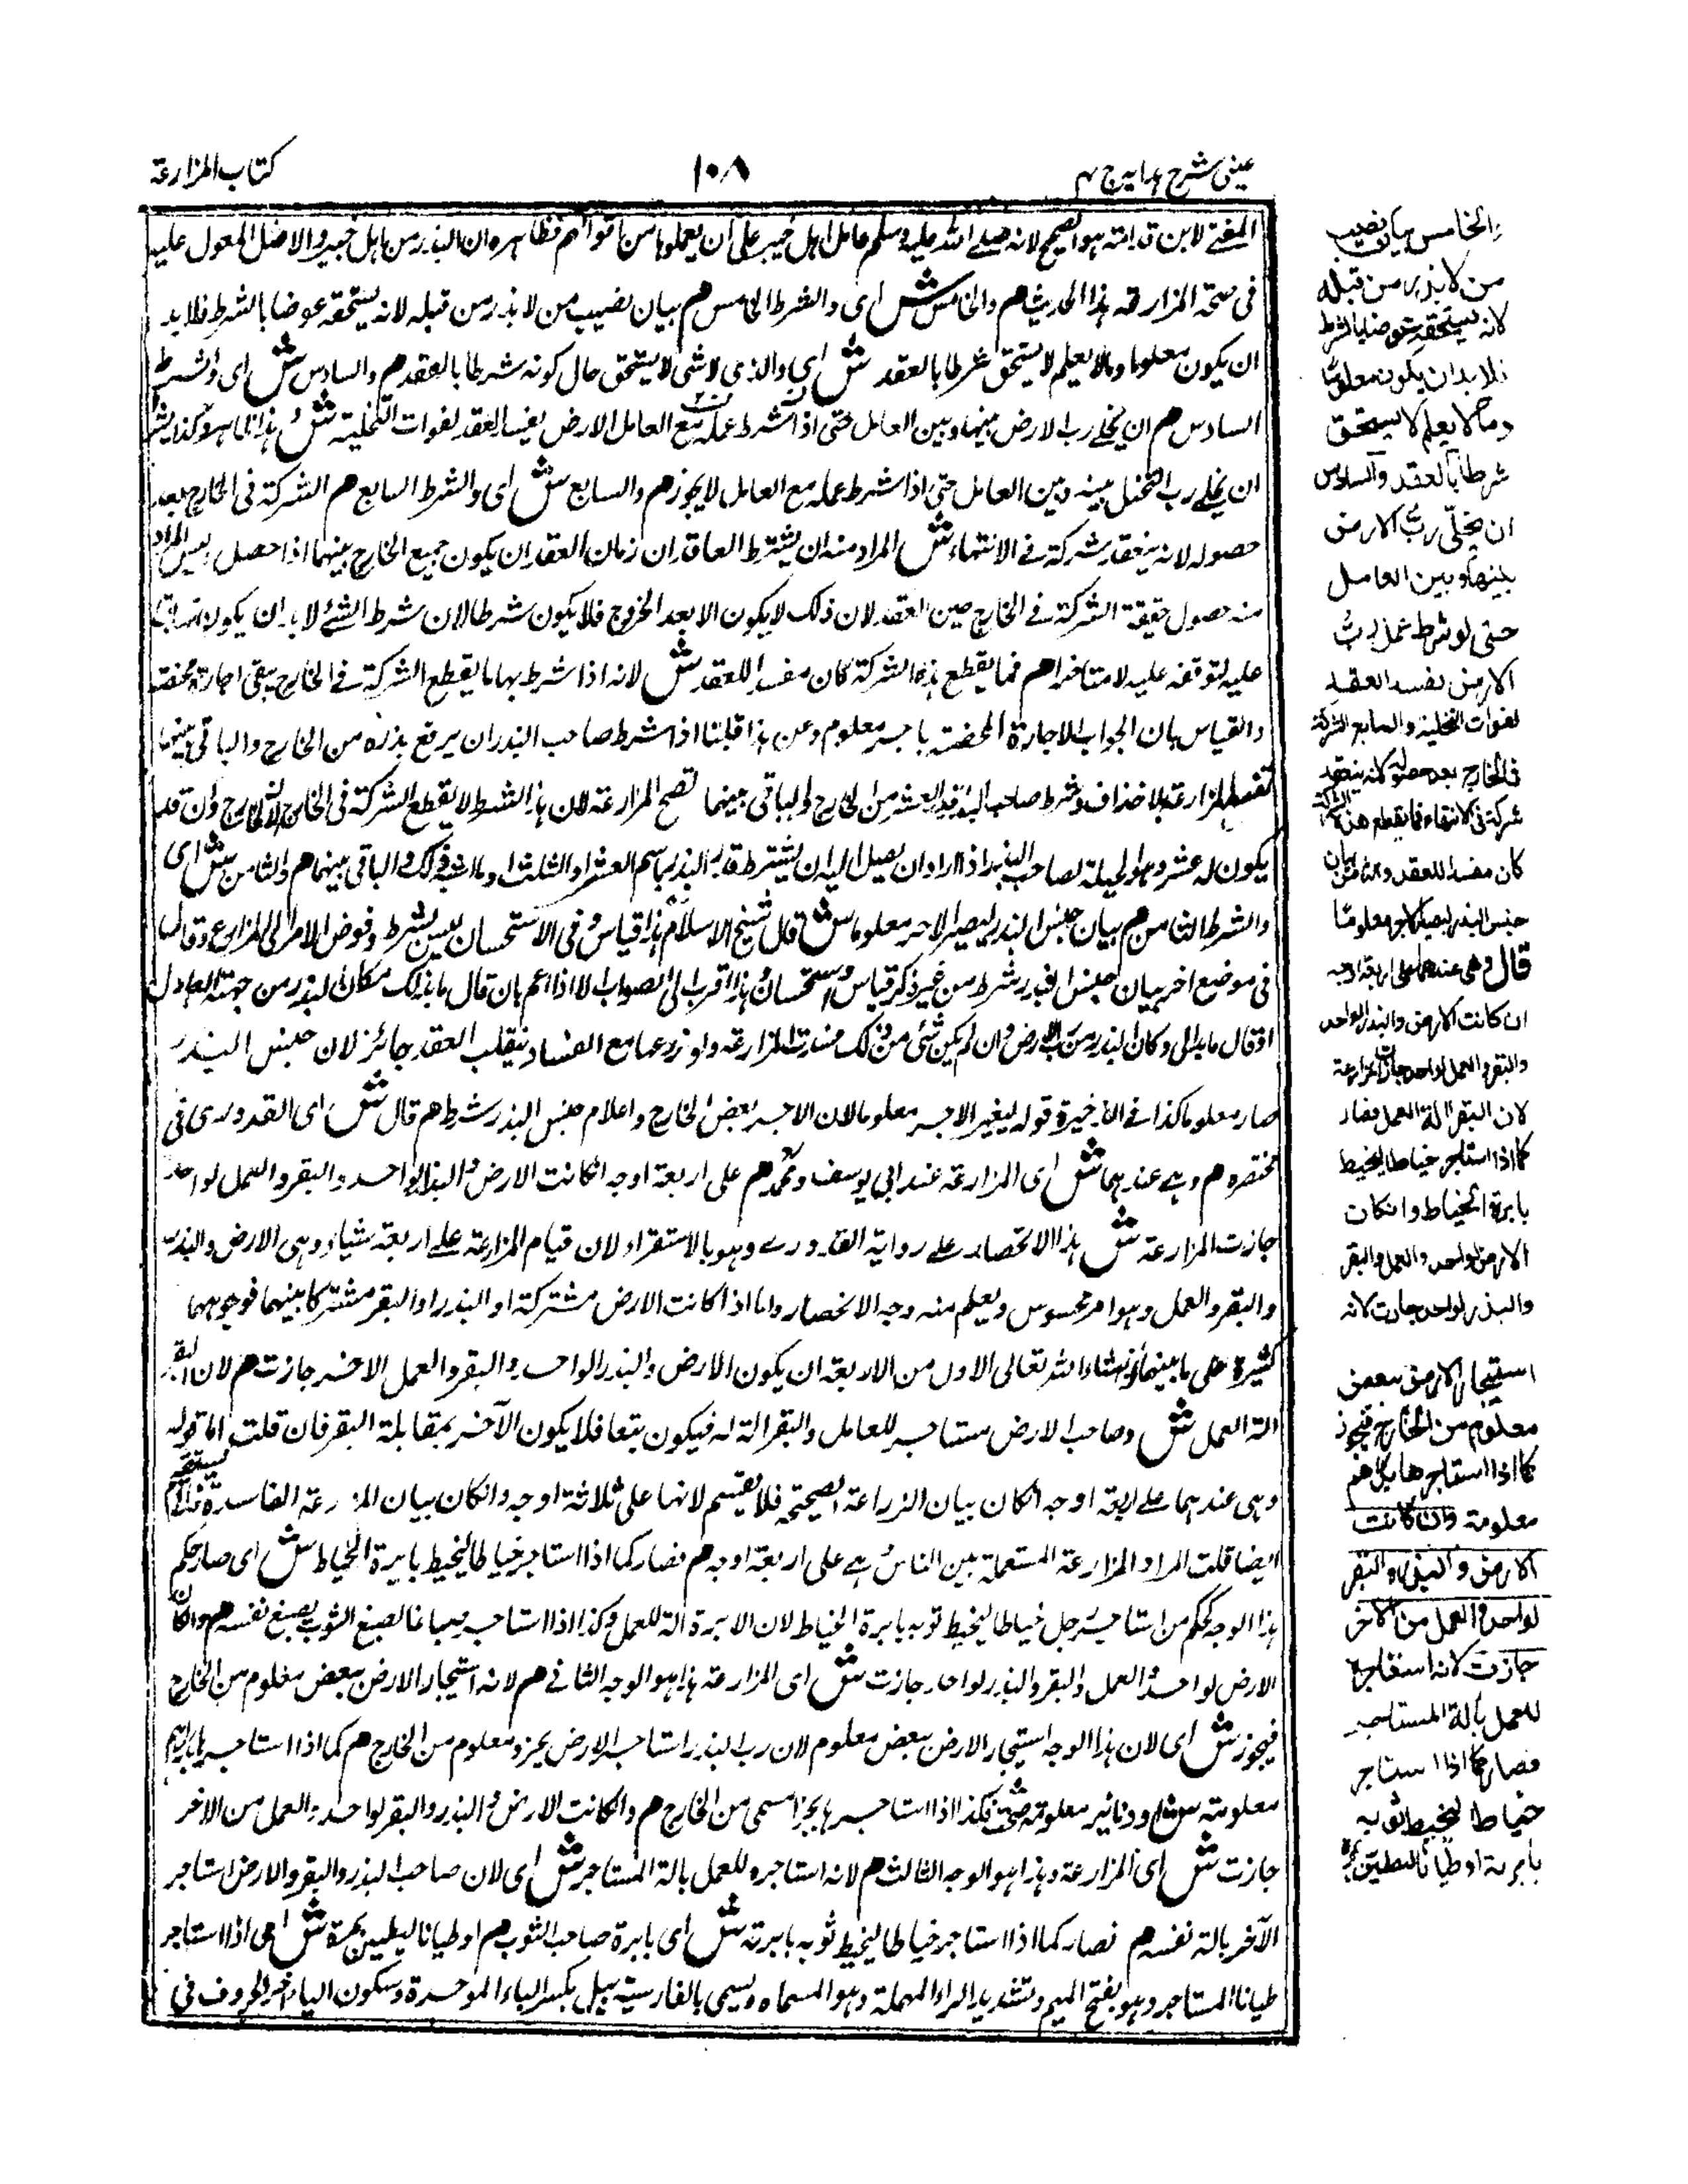 عینی شرح هدایہ ج ۴
١٠٨
كتاب المزارعة
المغنى لابن قدامة هو الصحيح لانه صلى الله عليه وسلم عامل اهل خيبر على ان يعملوها من اموالهم فظاهره ان البذر من اهل خيبر والاصل المعول عليه
فى صحة المزارعة هذا الحديث هم والخامس ش اى والشرط الخامس هم بيان نصيب من لا بذر من قبله لانه يستحقه عوضا بالشرط فلا بد
ان يكون معلوما وما لا يعلم لا يستحق شرطا بالعقد ش اى والذى لا شى لا يستحق حال كونه شرطا بالعقد هم والسادس ش اى والشرط
السادس هم ان يخلى رب الارض بينها وبين العامل حتى اذا شرط عمله مع العامل الارض يفسد العقد لفوات التخلية ش
ان يخلى رب النخل بينه وبين العامل حتى اذا شرط عمله مع العامل لا يجوز هم والسابع ش اى والشرط السابع هم الشركة فى الخارج بعد
حصوله لانه ينعقد شركة فى الانتهاء ش المراد منه ان يشترط العاقدان زمان العقد ان يكون جميع الخارج بينهما اذا حصل ليس المراد
منه حصول حقيقة الشركة فى الخارج حين العقد لان ذلك لا يكون الا بعد الخروج فلا يكون شرطا لان شرط الشئ لا بد ان يكون سابقا
عليه لتوقفه عليه لا متاخرا هم فما يقطع هذه الشركة كان مفسدا للعقد ش لانه اذا شرط بها ما يقطع الشركة فى الخارج يبقى اجارة محضة
والقياس بان الجواب الاجارة المحضة باجر معلوم وعن هذا قلنا اذا شرط صاحب البذر ان يرفع بذره من الخارج والباقى بينهما
تفسد المزارعة بلا خلاف ولو شرط صاحب البذر قدر العشر من الخارج له والباقى بينهما تصح المزارعة لان هذا الشرط لا يقطع الشركة فى الخارج لان الخارج وان قل
يكون له عشر وهو الحيلة لصاحب البذر اذا اراد ان يصل اليه ان يشترط قدر البذر باسم العشر او الثلث او ما اشبه ذلك والباقى بينهما هم والثامن ش اى
والشرط الثامن هم بيان جنس البذر ليصير الاجر معلوما ش قال شيخ الاسلام هذا قياس وفى الاستحسان ليس بشرط وفوض الامر الى المزارع وقال
فى موضع اخر بيان جنس البذر شرط من غير ذكر قياس واستحسان هذا اقرب الى الصواب الا اذا عم بان قال ما بدا لك مكان البذر من جهة العامل
او قال ما بدا لى وكان البذر من رب الارض وان لم يكن شئ من ذلك فسدت المزارعة ولو زرعها مع الفساد ينقلب العقد جائز لان جنس البذر
صار معلوما كذا فى الذخيرة قوله ليصير الاجر معلوما لان الاجر بعض الخارج واعلام جنس البذر شرط هم قال ش اى القدورى فى
مختصره هم وهى عندهما ش اى المزارعة عند ابى يوسف ومحمد هم على اربعة اوجه ان كانت الارض والبذر لواحد والبقر والعمل لواحد
جازت المزارعة ش هذا الانحصار على رواية القدورى وهو بالاستقراء لان قيام المزارعة على اربعة اشياء وهى الارض والبذر
والبقر والعمل وهو امر محسوس ويعلم منه وجه الانحصار واما اذا كانت الارض مشتركة او البذر او البقر مشتركا بينهما فوجوهها
كثيرة على ما بينها ان شاء الله تعالى الاول من الاربعة ان يكون الارض والبذر لواحد والبقر والعمل الاخر جازت هم لان البقر
الة العمل ش وصاحب الارض مستاجر للعامل والبقر الة له فيكون تبعا فلا يكون الآخر بمقابلة البقر فان قلت اما قوله
وهى عندهما على اربعة اوجه ان كان بيان الزراعة الصحيحة فلا يستقيم لانها على ثلاثة اوجه وان كان بيان المزارعة الفاسدة
ايضا قلت المراد المزارعة المستعملة بين الناس هى على اربعة اوجه هم فصار كما اذا استاجر خياطا ليخيط بابرة الخياط ش اى صار حكم
هذا الوجه كحكم من استاجر رجل خياطا ليخيط ثوبه بابرة الخياط لان الابرة الة للعمل وكذا اذا استاجر صباغا لصبغ الثوب بصبغ نفسه هم وان كان
الارض لواحد والعمل والبقر والبذر لواحد جازت ش اى المزارعة هذا هو الوجه الثانى هم لانه استيجار الارض ببعض معلوم من الخارج
فيجوز ش اى لان هذا الوجه استيجار الارض ببعض معلوم لان رب البذر استاجر الارض بجزء معلوم من الخارج هم كما اذا استاجرها بدراهم
معلومة ش او دنانير معلومة صحت فكذا اذا استاجرها بجزء مسمى من الخارج هم وان كانت الارض والبذر والبقر لواحد والعمل من الاخر
جازت ش اى المزارعة وهذا هو الوجه الثالث هم لانه استاجره للعمل بالة المستاجر ش اى لان صاحب البذر والبقر والارض استاجر
الآخر بالة نفسه هم فصار كما اذا استاجر خياطا ليخيط ثوبه بابرته ش اى بابرة صاحب الثوب هم او طيانا ليطين بمره ش اى اذا استاجر
طيانا المستاجر وهو بفتح الميم وتشديد الراء المهملة وهو المسحاة ويسمى بالفارسية بيل بكسر الباء الموحدة وسكون الياء اخر الحروف فى
والخامس بيان نصيب
من لا بذر من قبله
لانه يستحقه عوضا بالشرط
فلا بد ان يكون معلومًا
وما لا يعلم لا يستحق
شرطا بالعقد والسادس
ان يخلّى ربّ الارض
بينها وبين العامل
حتى لو شرط عمل ربّ
الارض يفسد العقد
لفوات التخلية والسابع الشركة
فى الخارج بعد حصوله لانه ينعقد
شركة فى الانتهاء فما يقطع هذه الشركة
كان مفسدا للعقد والثامن بيان
جنس البذر ليصير الاجر معلومًا
قال وهى عندهما على اربعة اوجه
ان كانت الارض والبذر لواحد
والبقر والعمل لواحد جازت المزارعة
لان البقر الة العمل فصار
كما اذا استاجر خياطا ليخيط
بابرة الخياط وان كان
الارض لواحد والعمل والبقر
والبذر لواحد جازت لانه
استيجار الارض ببعض
معلوم من الخارج فيجوز
كما اذا استاجرها بدراهم
معلومة وان كانت
الارض والبذر والبقر
لواحد والعمل من الاخر
جازت لانه استاجره
للعمل بآلة المستاجر
فصار كما اذا استاجر
خياطا ليخيط ثوبه
بابرته او طيانا ليطين بمره